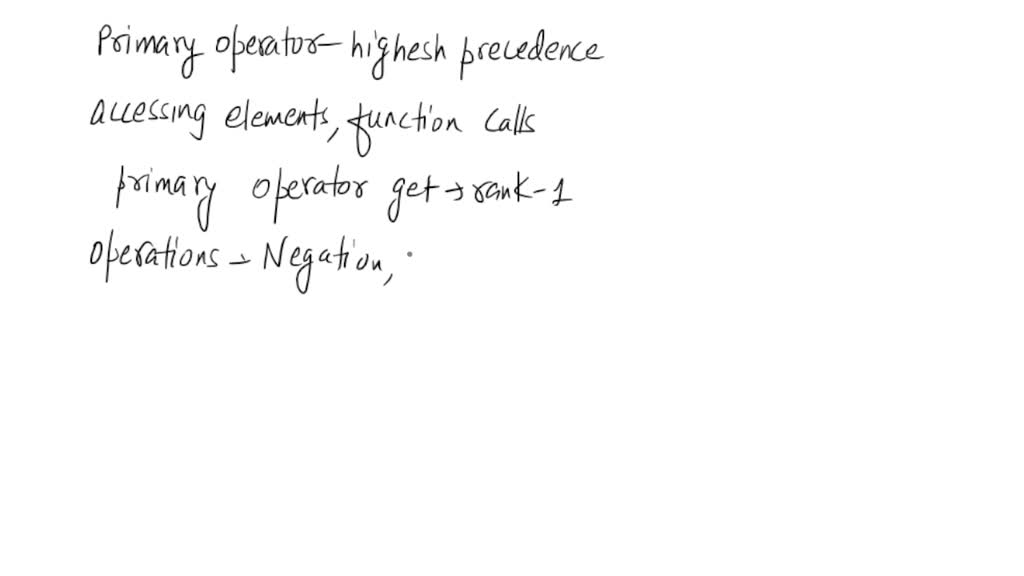 Primary operator- highesh precedence
accessing elements, function calls
primary operator get → rank-1
operations → Negation,